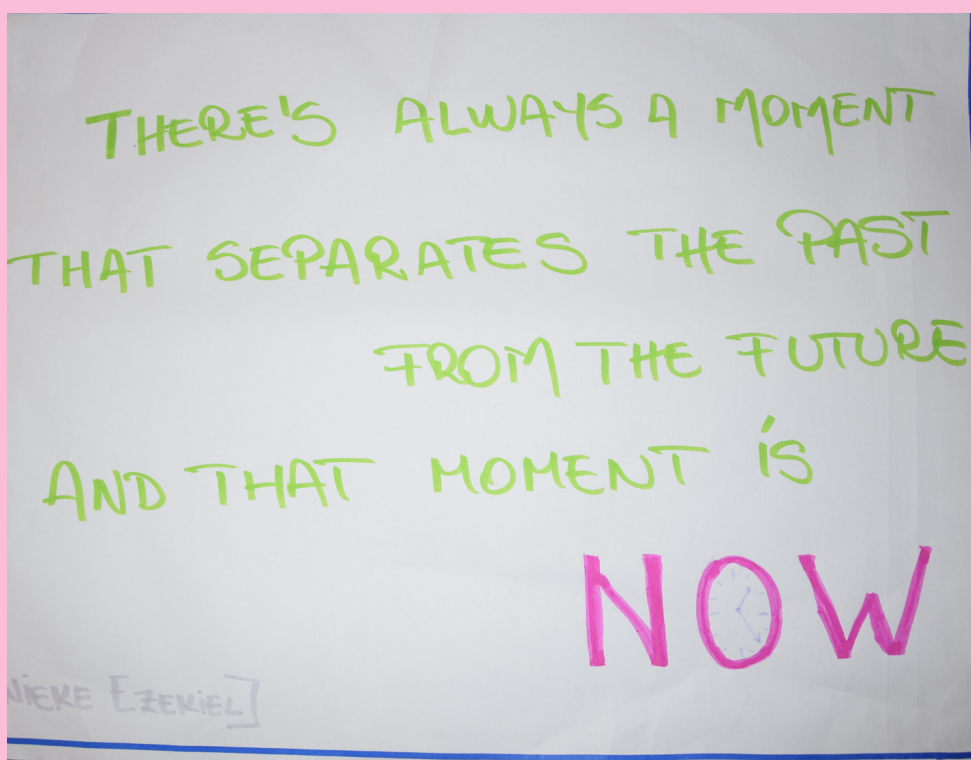 THERE'S ALWAYS A MOMENT
THAT SEPARATES THE PAST
FROM THE FUTURE
AND THAT MOMENT IS
NOW
[EZEKIEL]